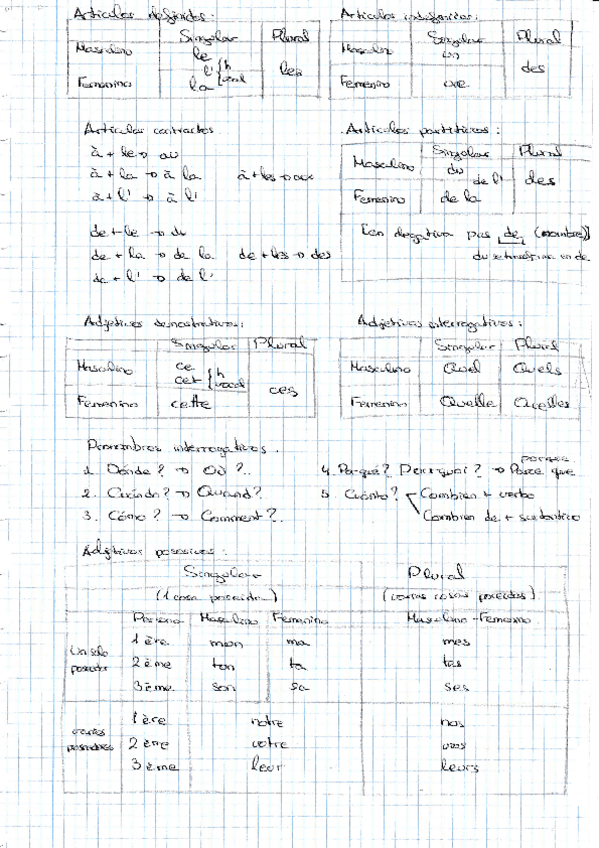 Artículos definidos:
Singular Plural
Masculino le
l' { h vocal les
Femenino la
Artículos indefinidos:
Singular Plural
Masculino un
des
Femenino une
Artículos contractos
à + le → au
à + la → à la à + les → aux
à + l' → à l'
de + le → du
de + la → de la de + les → des
de + l' → de l'
Artículos partitivos:
Singular Plural
Masculino du
de l' des
Femenino de la
[en negativa pas de (nombre)]
Adjetivos demostrativos:
Singular Plural
Masculino ce
cet { h vocal ces
Femenino cette
Adjetivos interrogativos:
Singular Plural
Masculino Quel Quels
Femenino Quelle Quelles
Pronombres interrogativos.
1. Dónde? → Où?
2. Cuándo? → Quand?
3. Cómo? → Comment?
porque
4. Porqué? Pourquoi? → Parce que
5. Cuánto? Combien + verbo
Combien de + sustantivo
Adjetivos posesivos:
Singular Plural
(1 cosa poseida) (varias cosas poseidas)
Persona Masculino Femenino Masculino - Femenino
Un solo poseedor 1ère mon ma mes
2ème ton ta tes
3ème son sa ses
varios poseedores 1ère notre nos
2ème votre vos
3ème leur leurs